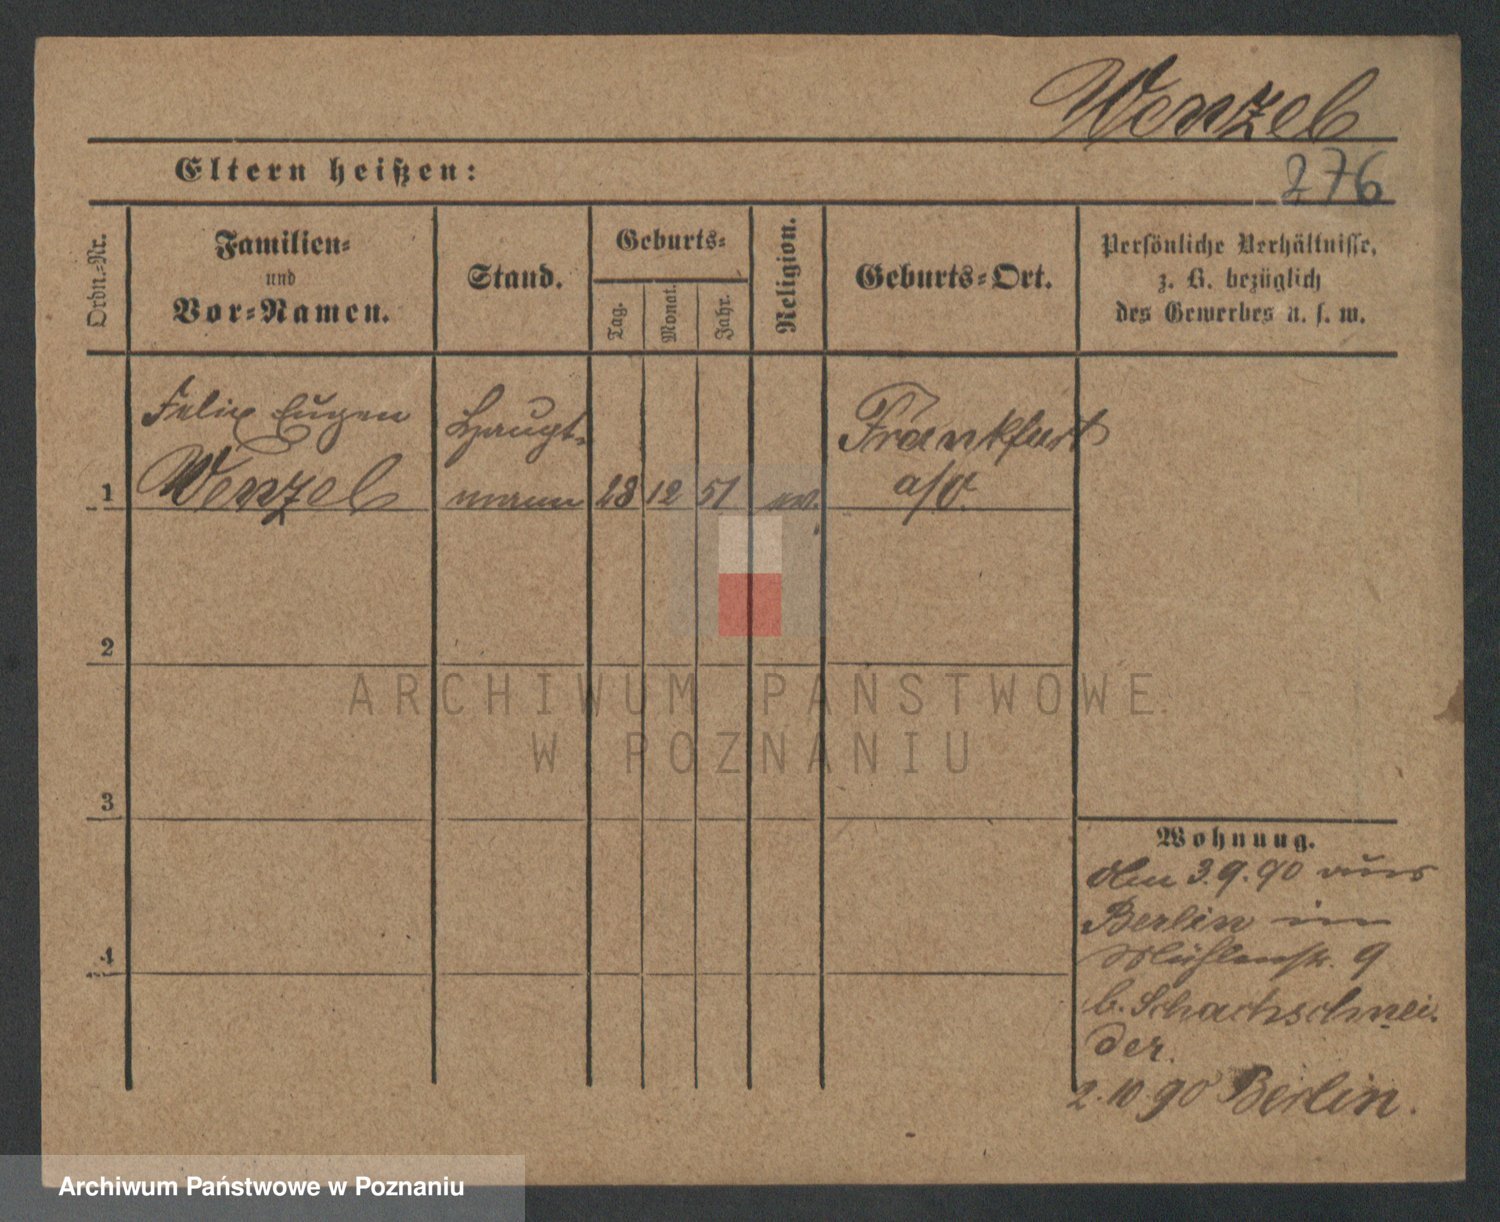 Wenzel
Eltern heißen:
276
Ordn.-Nr.
Familien-
und
Vor-Namen.
Stand.
Geburts-
Tag.
Monat.
Jahr.
Religion.
Geburts-Ort.
Persönliche Verhältnisse,
z. B. bezüglich
des Gewerbes u. s. w.
Felix Eugen
Wenzel
Haupt-
mann
1
28
12
51
ev.
Frankfurt
a/O.
2
ARCHIWUM PAŃSTWOWE
W POZNANIU
3
Wohnung.
Den 3.9.90 aus
Berlin in
Mühlenstr. 9
b. Schachschnei-
der.
4
2.10.90 Berlin.
Archiwum Państwowe w Poznaniu